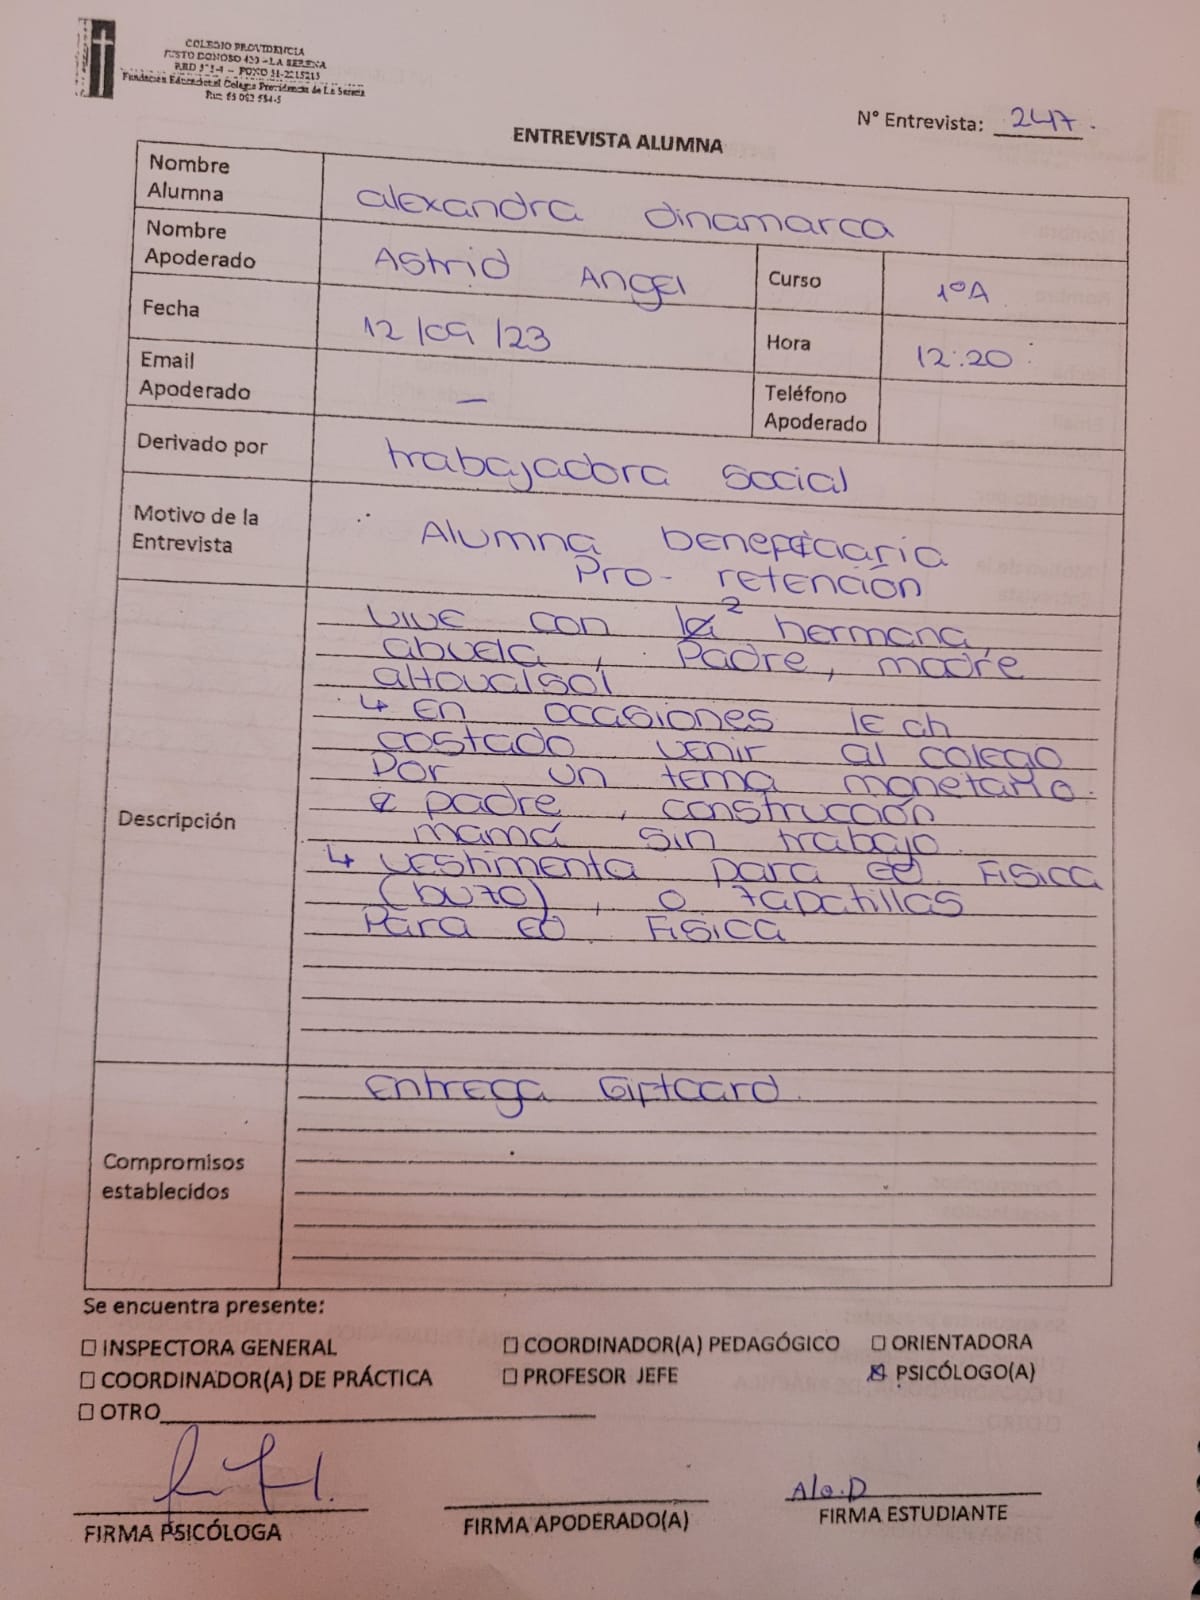 COLEGIO PROVIDENCIA
JUSTO DONOSO 420 - LA SERENA
RBD 573-4 - FONO 51-2215215
Fundación Educacional Colegio Providencia de La Serena
Rut: 65 092 554-5
N° Entrevista: 247.
ENTREVISTA ALUMNA
Nombre Alumna alexandra dinamarca
Nombre Apoderado Astrid Angel Curso 1ºA
Fecha 12/09/23 Hora 12:20
Email Apoderado - Teléfono Apoderado
Derivado por trabajadora social
Motivo de la Entrevista Alumna beneficiaria
Pro-retención
Descripción
vive con 2 hermana,
abuela, Padre, madre
altovalsol
↳ en ocasiones le ah
costado venir al colego
por un tema monetario.
padre, construcción
mamá sin trabajo.
↳ vestimenta para ed. Fisica
(buzo), o zapatillas
Para ed. Fisica
Compromisos establecidos
Entrega Giftcard.
Se encuentra presente:
☐ INSPECTORA GENERAL ☐ COORDINADOR(A) PEDAGÓGICO ☐ ORIENTADORA
☐ COORDINADOR(A) DE PRÁCTICA ☐ PROFESOR JEFE ☒ PSICÓLOGO(A)
☐ OTRO
Ale.D
FIRMA PSICÓLOGA FIRMA APODERADO(A) FIRMA ESTUDIANTE